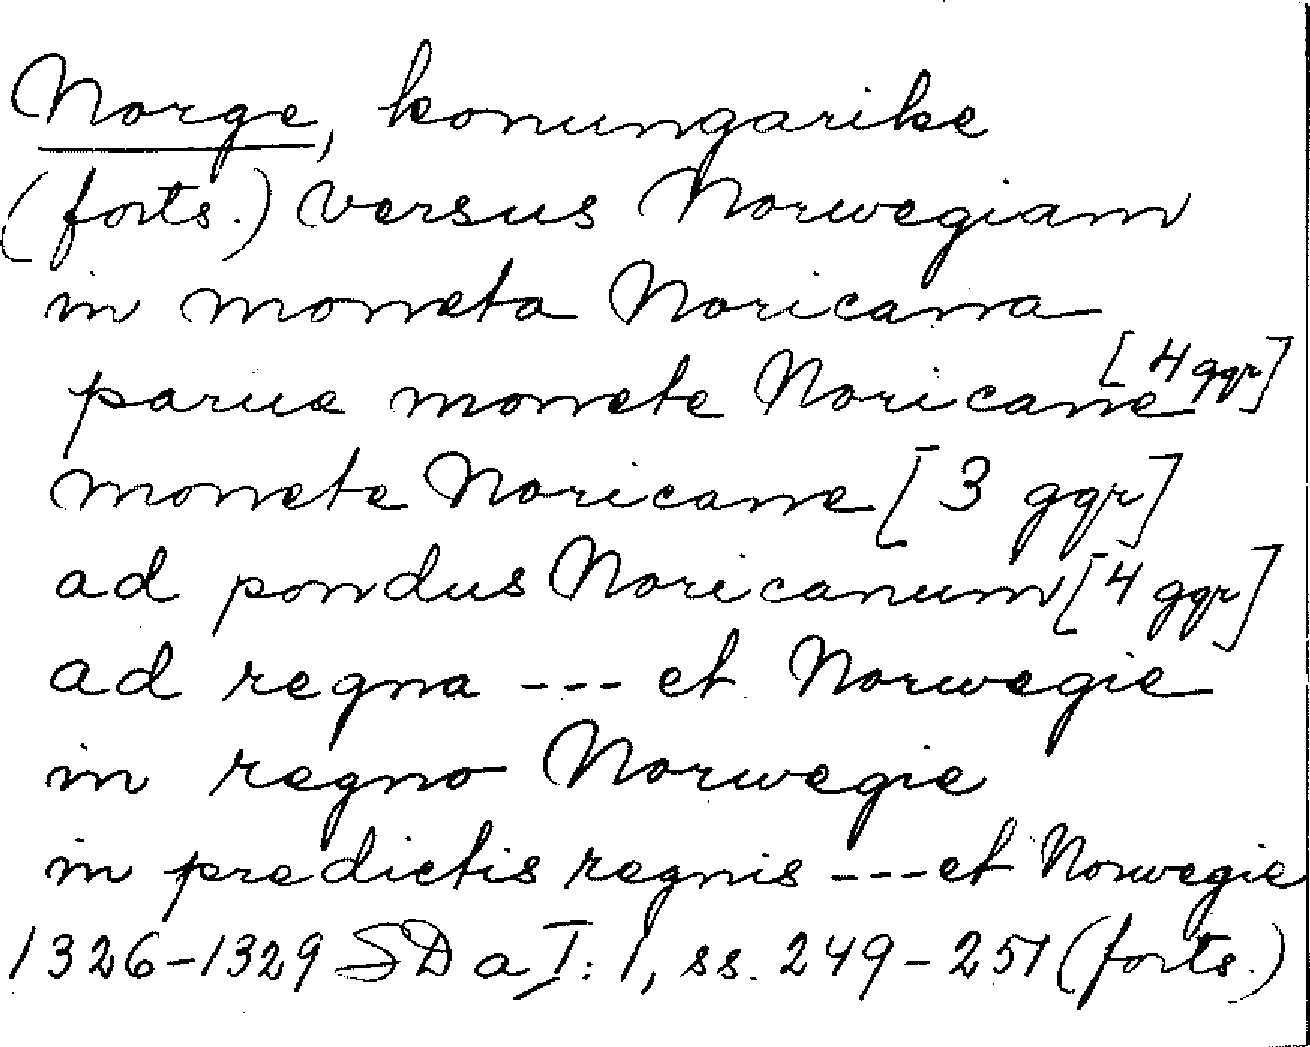 Norge, konungarike
(forts.) versus Norwegiam
in moneta Noricana
parue monete Noricane [4 ggr]
monete Noricane [3 ggr]
ad pondus Noricanum [4 ggr]
ad regna --- et Norwegie
in regno Norwegie
in predictis regnis --- et Norwegie
1326-1329 SD a I: 1, ss. 249-251 (forts.)